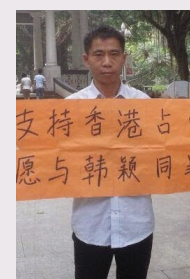 支持香港占
愿与韩颖同